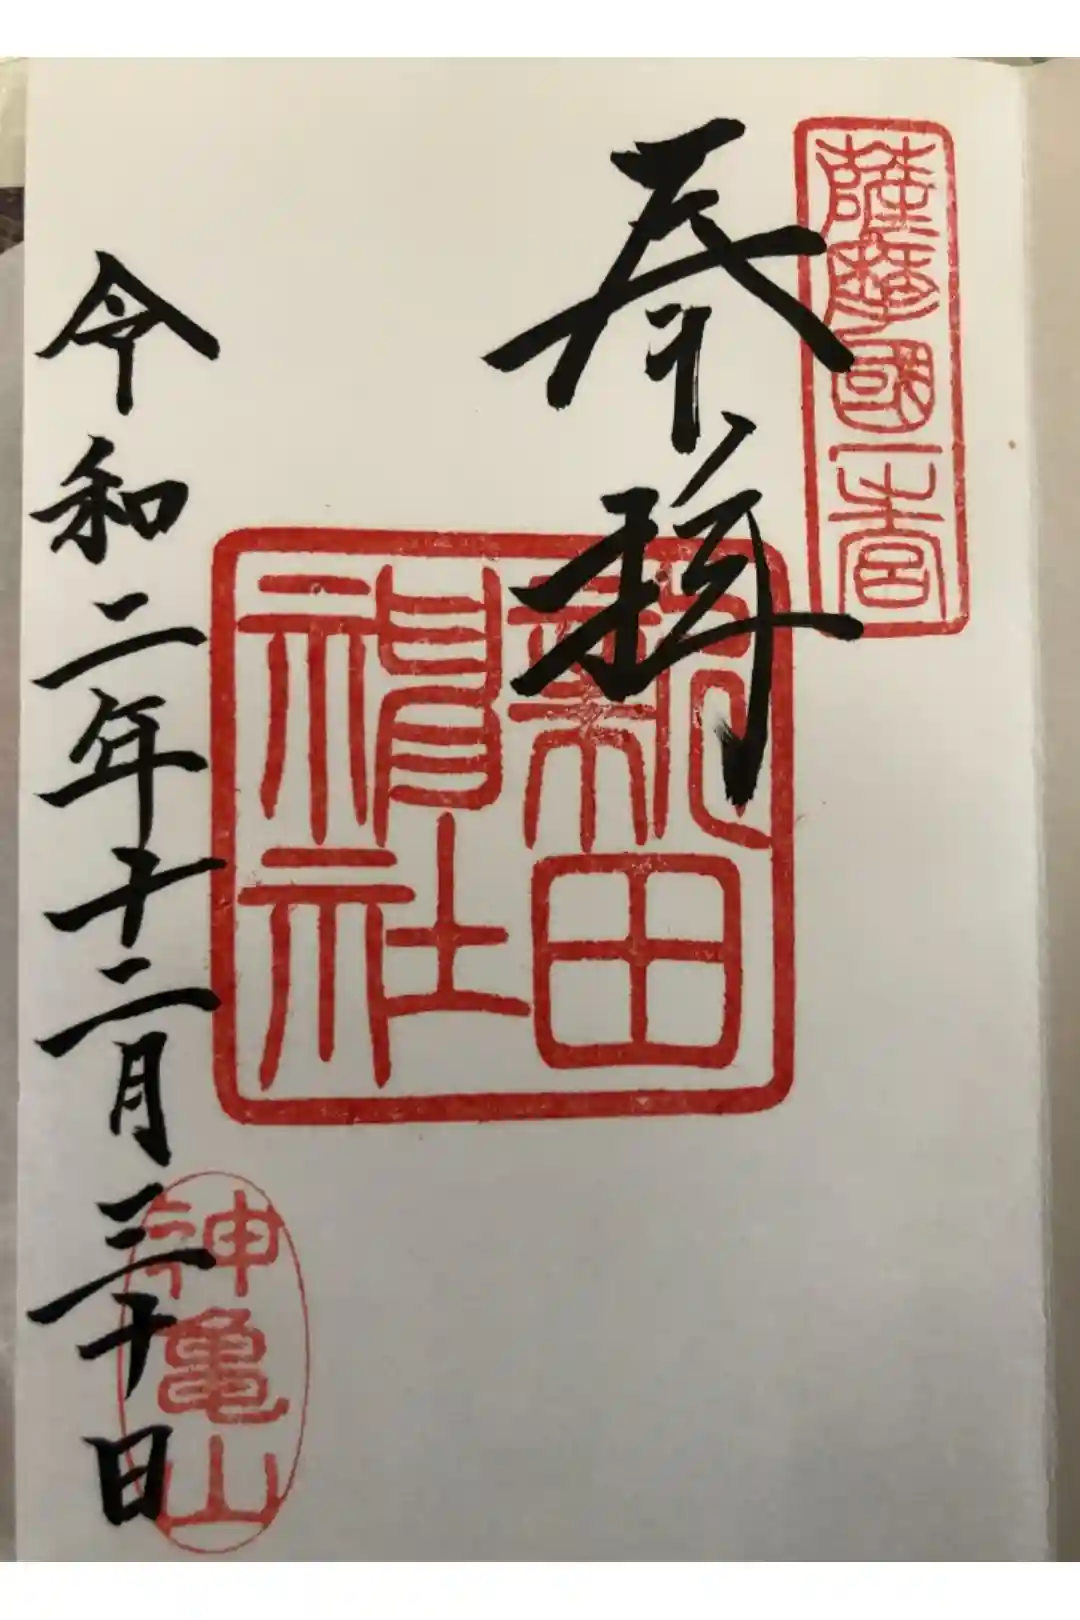 薩摩國一宮
奉拝
新田神社
令和二年十二月三十日
神亀山